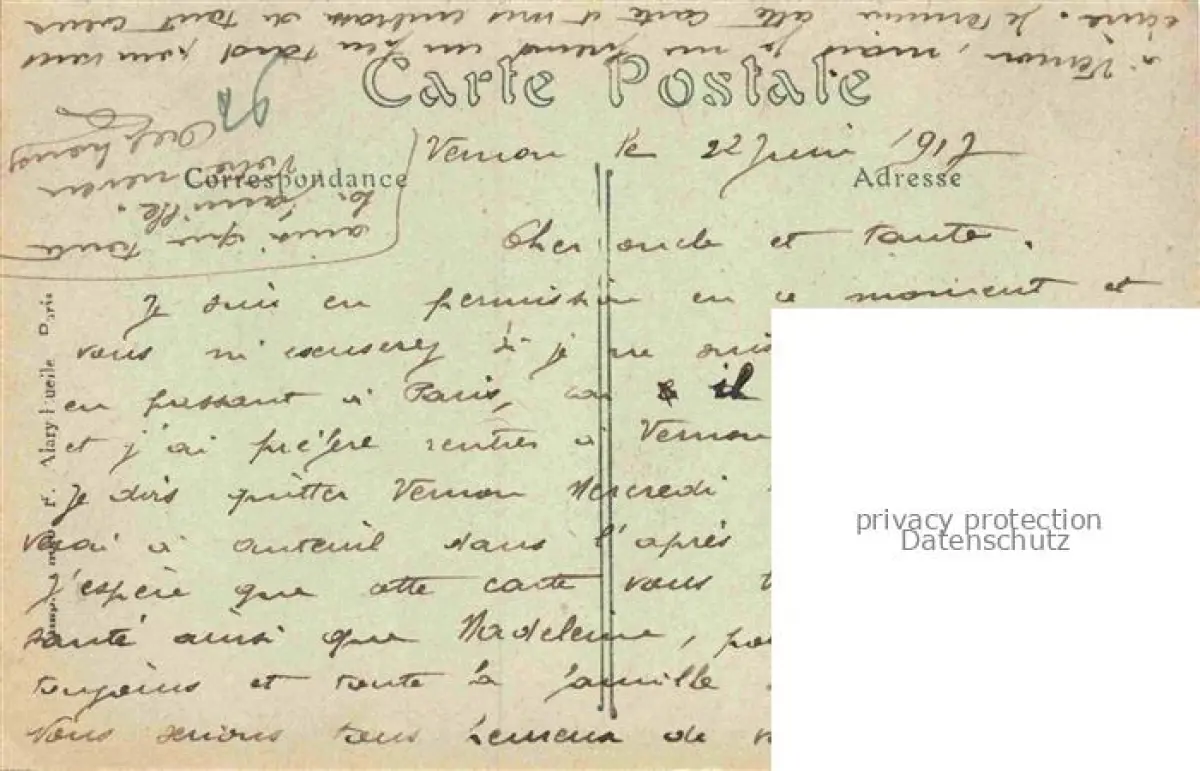 Carte Postale
Correspondance
Adresse
Vernon le 22 Juin 1917
Cher oncle et tante.
Je suis en permission en ce moment et
vous m'excuserez si je ne suis
en passant à Paris, car il
et j'ai préféré rentrer à Vernon
Je dois quitter Vernon Mercredi
verai à auteuil dans l'après
J'espère que cette carte vous
santé ainsi que Madeleine,
toujours et toute la famille
Vous serions tous heureux de
à Vernon, mais je me prends un peu tard pour vous
écrire. Je termine cette carte et vous embrasse de tout cœur
ainsi que toute
la famille.
Votre neveu
Alphonse
F. Alary-Ruelle Paris
privacy protection
Datenschutz